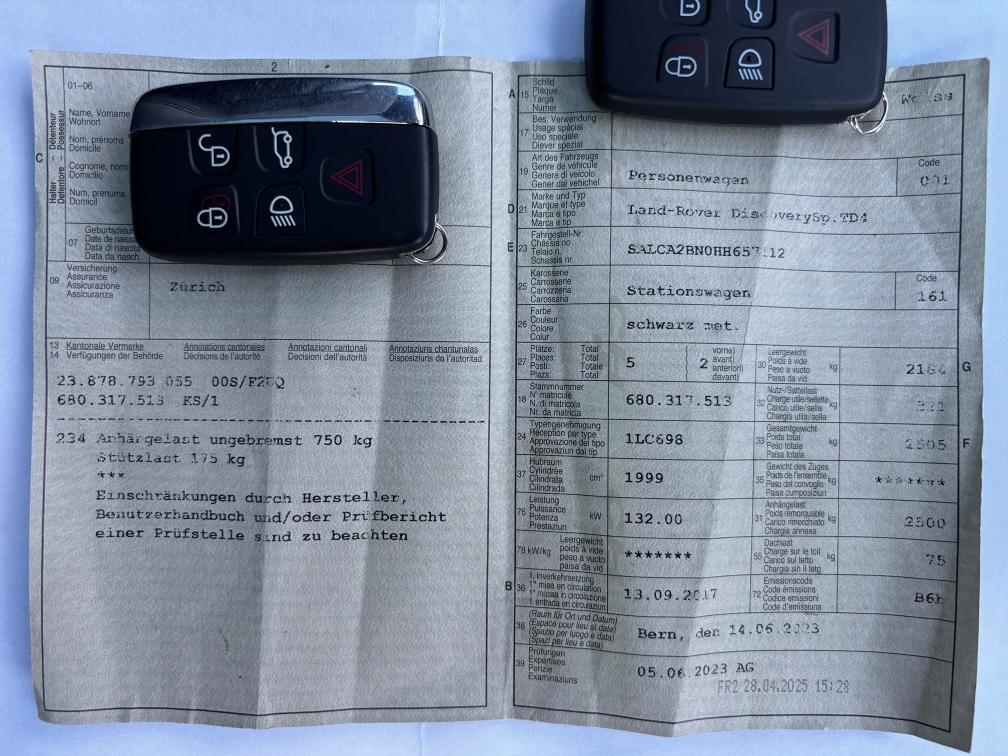 2
01-06
Name, Vorname
Wohnort
Nom, prénoms
Domicile
Cognome, nom
Domicilio
Num, prenums
Domicil
C
Halter – Détenteur
Detentore – Possessur
07
Geburtsdatu
Date de naissa
Data di nascita
Data da nasch.
09
Versicherung
Assurance
Assicurazione
Assicuranza
Zürich
13 Kantonale Vermerke Annotations cantonales Annotazioni cantonali Annotaziuns chantunalas
14 Verfügungen der Behörde Décisions de l'autorité Decisioni dell'autorità Disposiziuns da l'autoritad
23.878.793 055 00S/F2
680.317.513 KS/1
234 Anhängelast ungebremst 750 kg
Stützlast 175 kg
***
Einschränkungen durch Hersteller,
Benutzerhandbuch und/oder Prüfbericht
einer Prüfstelle sind zu beachten
A 15
Schild
Plaque
Targa
Numer
17
Bes. Verwendung
Usage spécial
Uso speciale
Diever spezial
19
Art des Fahrzeugs
Genre de véhicule
Genere di veicolo
Gener dal vehichel
Personenwagen
Code
001
D 21
Marke und Typ
Marque et type
Marca e tipo
Marca e tip
Land-Rover DiscoverySp.TD4
E 23
Fahrgestell-Nr.
Châssis no
Telaio n.
Schassis nr.
SALCA2BN0HH657112
25
Karosserie
Carrosserie
Carrozzeria
Carossaria
Stationswagen
Code
161
26
Farbe
Couleur
Colore
Colur
schwarz met.
27
Plätze: Total
Places: Total
Posti: Totale
Plazs: Total
5
2
vorne)
avant)
anteriori)
davant)
30
Leergewicht
Poids à vide
Peso a vuoto
Paisa da vid
kg
2184
G
18
Stammnummer
N° matricule
N. di matricola
Nr. da matricla
680.317.513
32
Nutz-/Sattellast
Charge utile/sellette
Carico utile/sella
Chargia utila/sella
kg
24
Typengenehmigung
Réception par type
Approvazione del tipo
Approvaziun dal tip
1LC698
33
Gesamtgewicht
Poids total
Peso totale
Paisa totala
kg
2505
F
37
Hubraum
Cylindrée
Cilindrata
Cilindrada
cm³
1999
35
Gewicht des Zuges
Poids de l'ensemble
Peso del convoglio
Paisa cumposiziun
kg
*******
76
Leistung
Puissance
Potenza
Prestaziun
kW
132.00
31
Anhängelast
Poids remorquable
Carico rimorchiato
Chargia annexa
kg
2500
78 kW/kg
Leergewicht
poids à vide
peso a vuoto
paisa da vid
*******
55
Dachlast
Charge sur le toit
Carico sul tetto
Chargia sin il tetg
kg
75
B 36
1. Inverkehrsetzung
1re mise en circulation
1a messa in circolazione
1. entrada en circulaziun
13.09.2017
72
Emissionscode
Code émissions
Codice emissioni
Code d'emissiuns
B6b
38
(Raum für Ort und Datum)
(Espace pour lieu et date)
(Spazio per luogo e data)
(Spazi per lieu e data)
Bern, den 14.06.2023
39
Prüfungen
Expertises
Perizie
Examinaziuns
05.06.2023 AG
FR2 28.04.2025 15:28